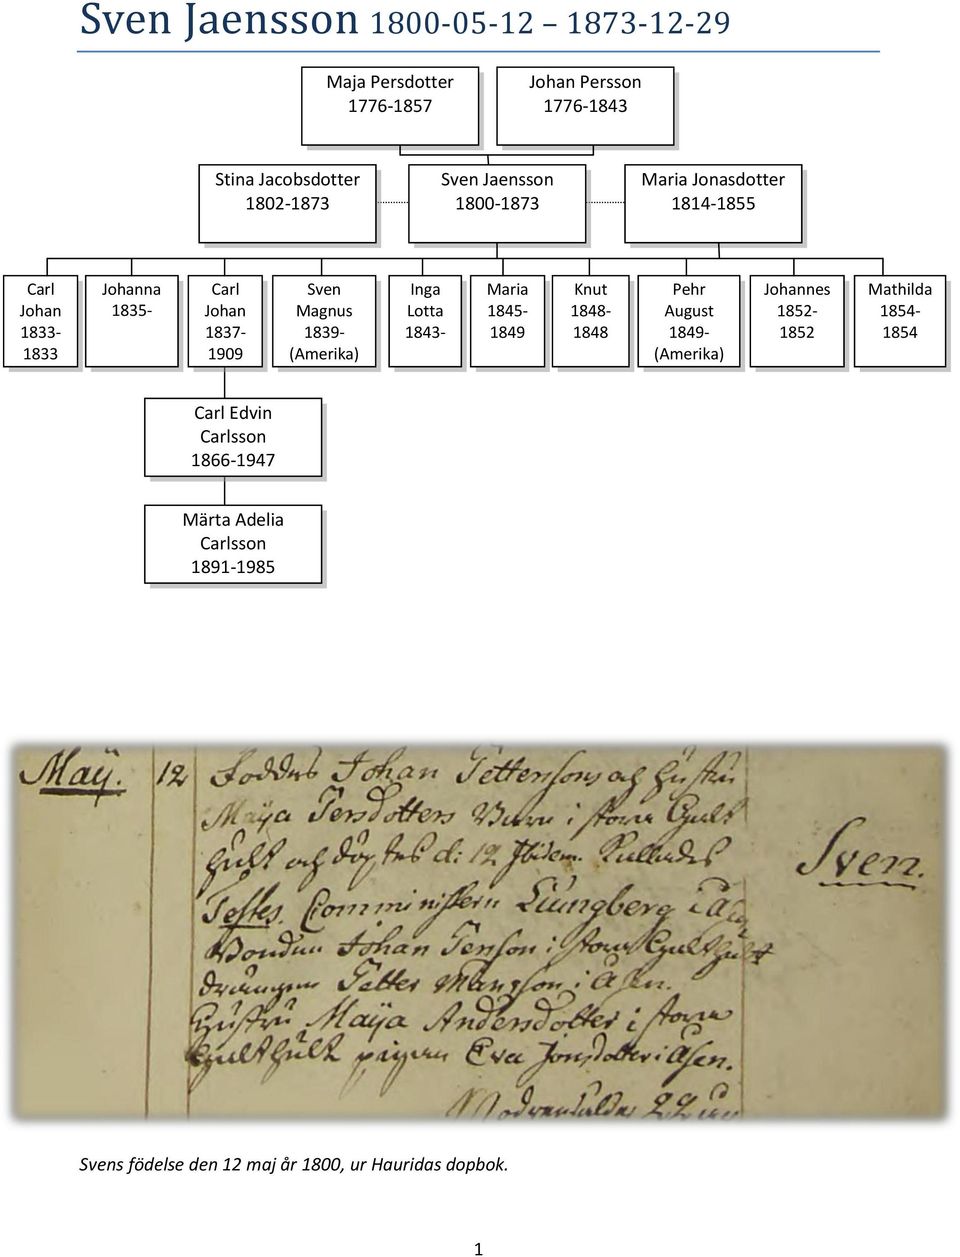 Sven Jaensson 1800-05-12 – 1873-12-29
Maja Persdotter
1776-1857
Johan Persson
1776-1843
Stina Jacobsdotter
1802-1873
Sven Jaensson
1800-1873
Maria Jonasdotter
1814-1855
Carl
Johan
1833-
1833
Johanna
1835-
Carl
Johan
1837-
1909
Sven
Magnus
1839-
(Amerika)
Inga
Lotta
1843-
Maria
1845-
1849
Knut
1848-
1848
Pehr
August
1849-
(Amerika)
Johannes
1852-
1852
Mathilda
1854-
1854
Carl Edvin
Carlsson
1866-1947
Märta Adelia
Carlsson
1891-1985
Maÿ. 12 Föddes Johan Pettersons och hustru
Maÿa Persdotters Barn i stora
hult och döptes d: 12 Ibidem. Kallades
Sven.
Testes. Comministern Liungberg i
Bonden Johan Jenson i stora
drängen Petter Mångson i Åsen.
Hustru Maÿa Andersdotter i stora
pigan Eva Jonsdotter i Åsen.
Svens födelse den 12 maj år 1800, ur Hauridas dopbok.
1